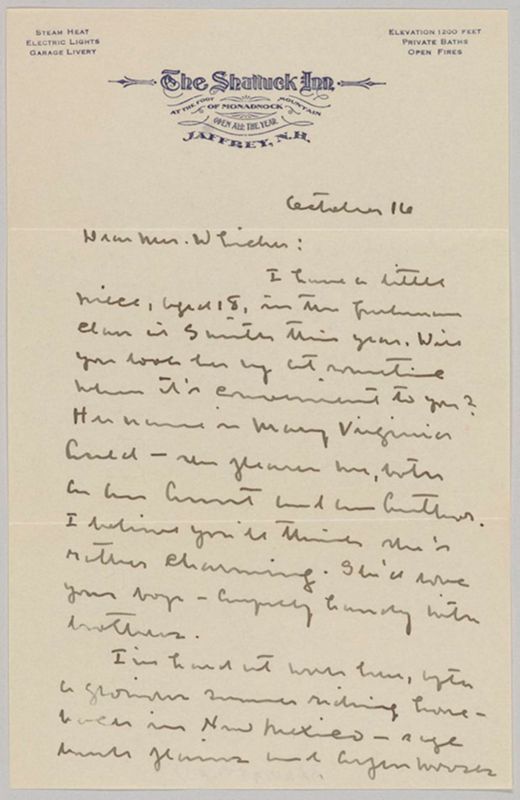 STEAM HEAT
ELECTRIC LIGHTS
GARAGE LIVERY
ELEVATION 1200 FEET
PRIVATE BATHS
OPEN FIRES
The Shattuck Inn
AT THE FOOT OF MONADNOCK MOUNTAIN
OPEN ALL THE YEAR
JAFFREY, N.H.
October 16
Dear Mrs. Whicher:
I have a little
niece, aged 18, in the freshman
class at Smith this year. Will
you look her up at sometime
when it's convenient to you?
Her name is Mary Virginia
Auld — she pleases me, both
as an Aunt and an Author.
I believe you'll think she's
rather charming. She'd love
your boys — awfully handy with
brothers.
I'm hard at work here, after
a glorious summer riding horse-
back in New Mexico — sage
brush plains and aspen woods